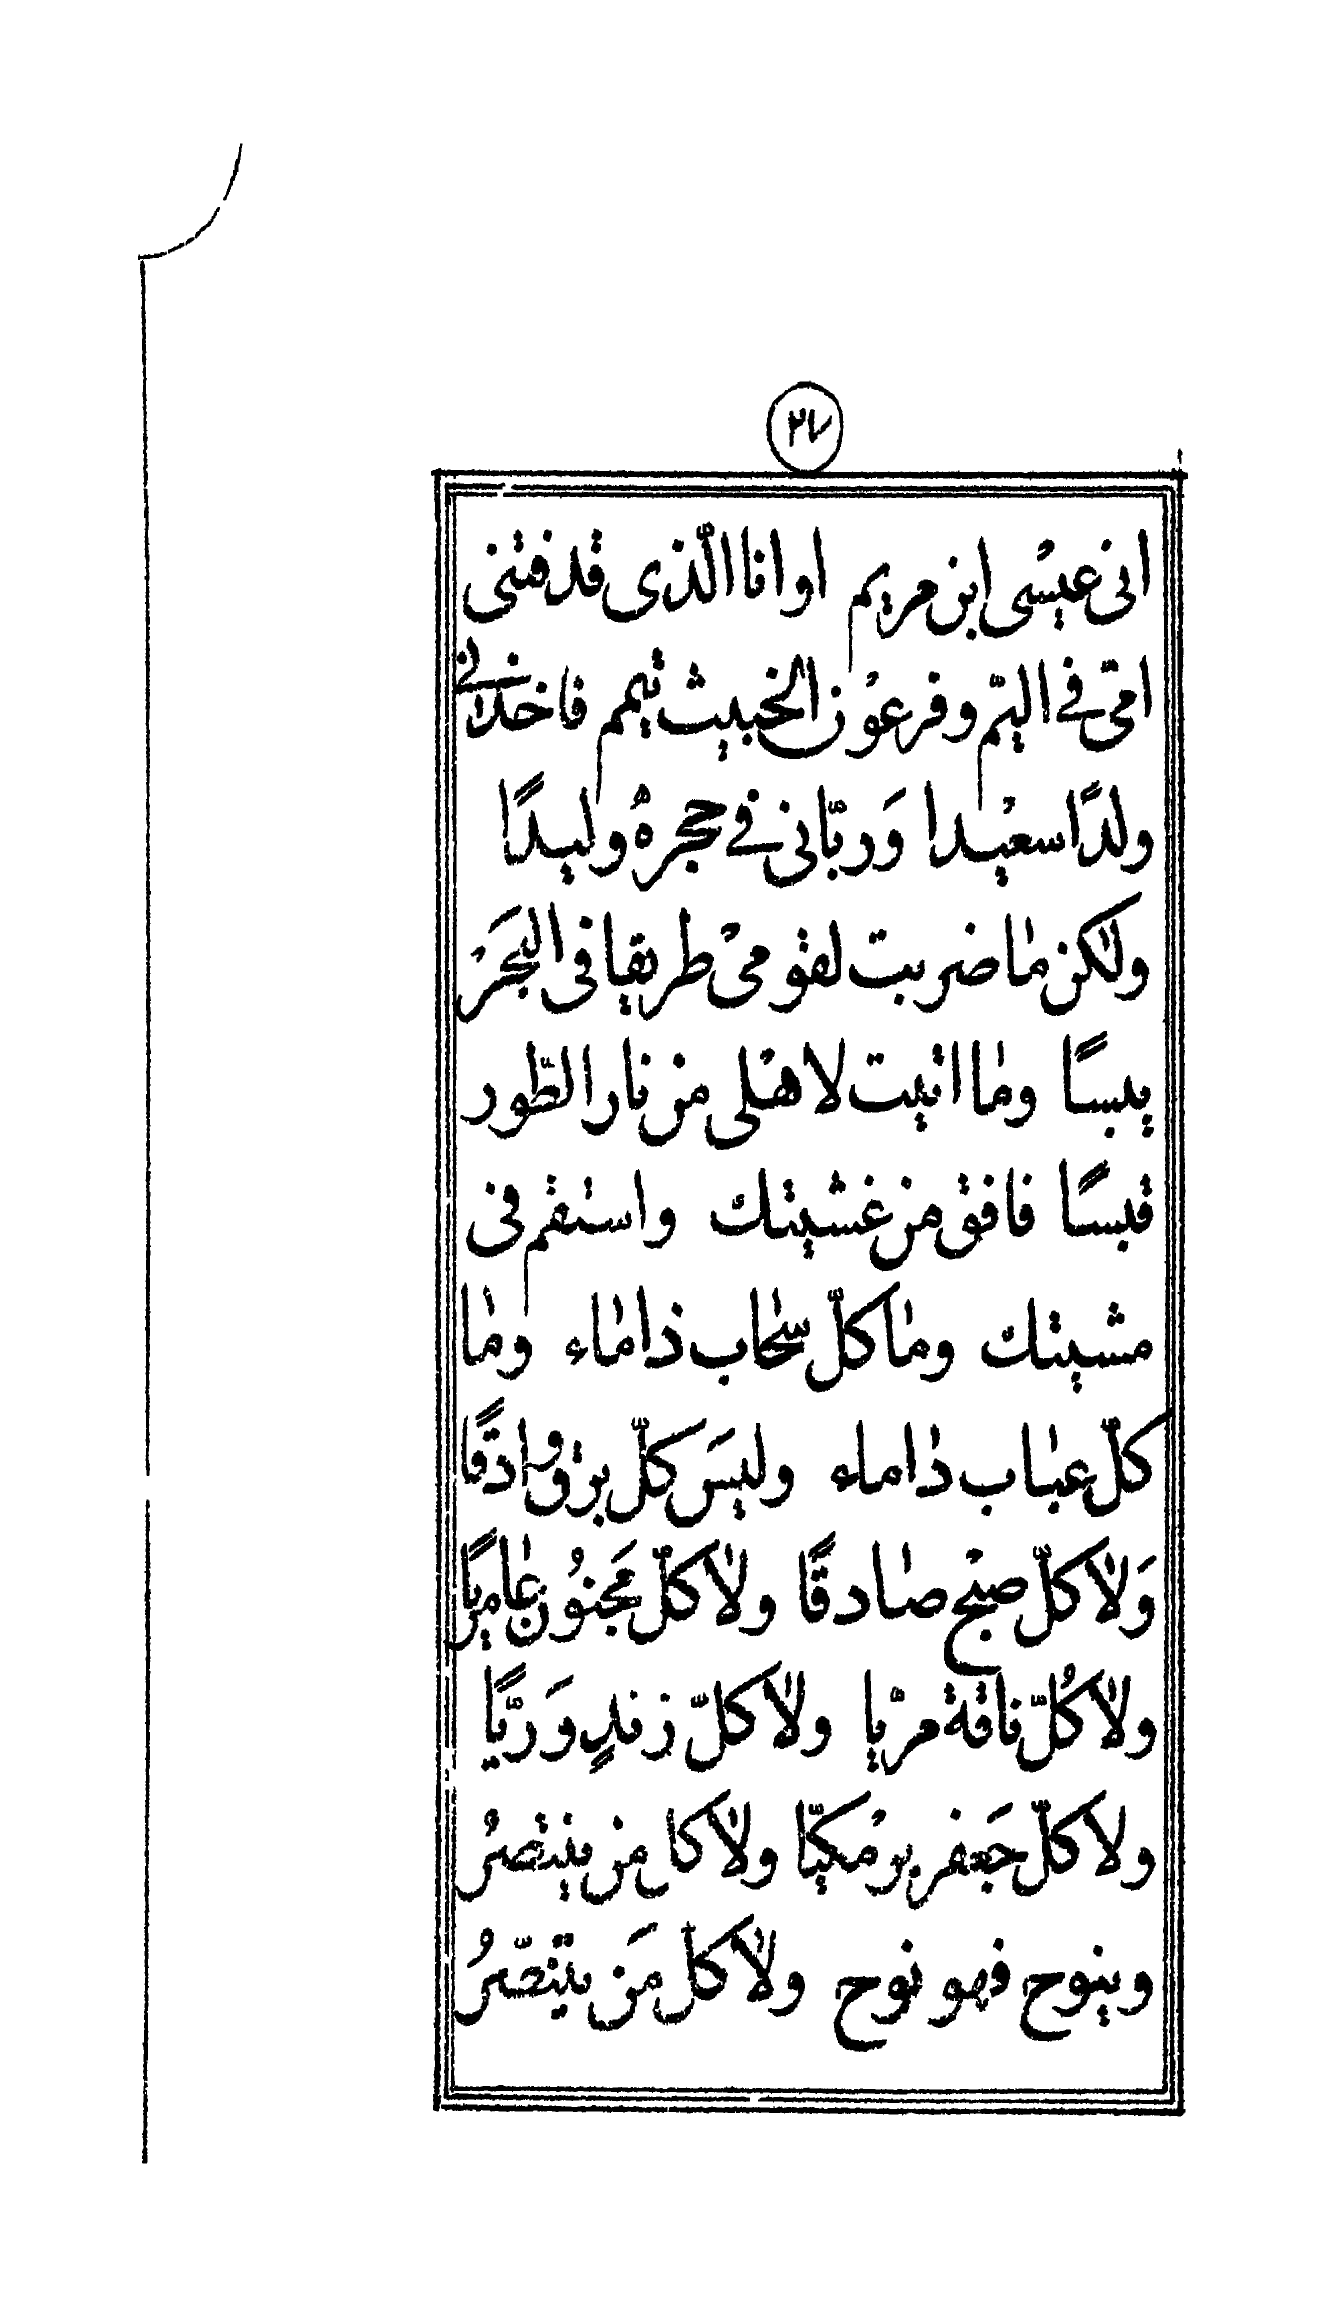 ٢٧
انى عيسْى ابن مريم اوانا الّذى قدفتنى
امّى فے اليمّ وفرعوْن الخبيث تيمم فاخذانے
ولدًا سعيْدا وَربّانى فے حجرهُ وليدًا
ولٰكن مٰاضربت لقومىْ طريقا فى البَحرْ
يبسًا ومٰا اتيت لاهْلى من نار الطّور
قبسًا فافق من غشيتك واستقم فى
مشيتك ومٰاكلّ سحٰاب ذامٰاء ومٰا
كلّ عبٰاب ذٰاماء وليسَ كلّ برْق وادقًا
وَلاٰكلّ صبْح صٰادقًا ولاٰكلّ مَجنوُن عٰامريًا
ولاٰكُلّ ناقة مرْيا ولاٰكلّ زندٍ وَرّيًا
ولاكلّ جَعفر برْمكيّا ولاٰكا من ينتصرُ
وينوح فهو نوح ولاٰكل مَن يتنصّرُ